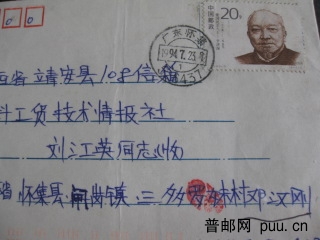 20分
中国邮政
广东怀集
1994.7.25
省靖安县108信箱
科工贸技术情报社
刘江英同志收
省怀集县 镇三多罗林村邓汉刚
普邮网 puu.cn